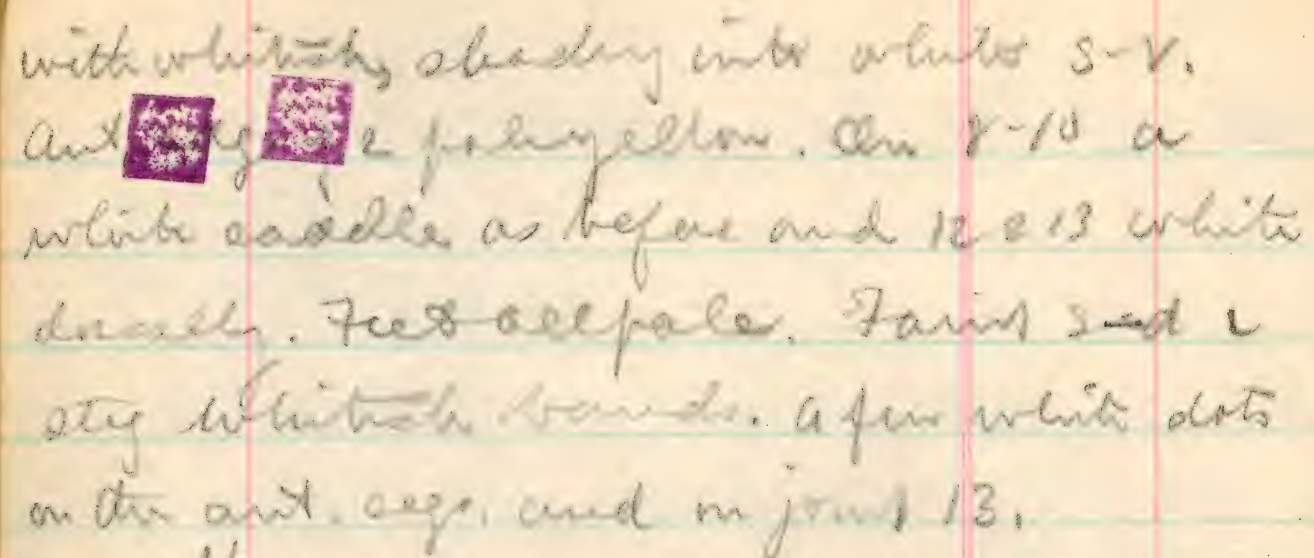 with whitish, shading into white s-v.
Ant edge pale yellow. On 8-10 a
white saddle as before and 12 & 13 white
dorsally. Feet all pale. Faint s-d &
stig whitish bands. A few white dots
on the ant. segs. and on joint 13.